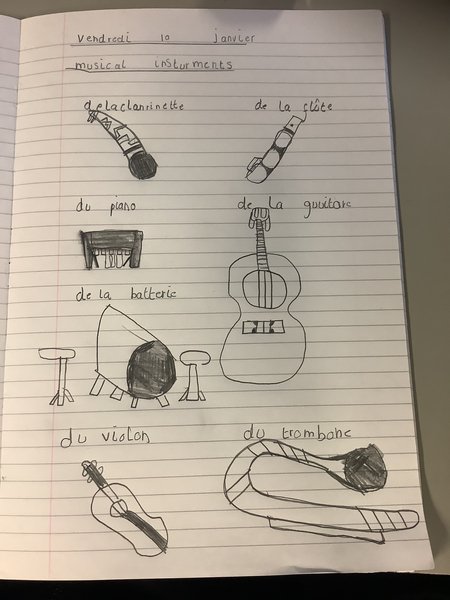 vendredi 10 janvier
musical insturments
de la clarrinette
de la flôte
du piano
de la guuitare
de la batterie
du violon
du trombone